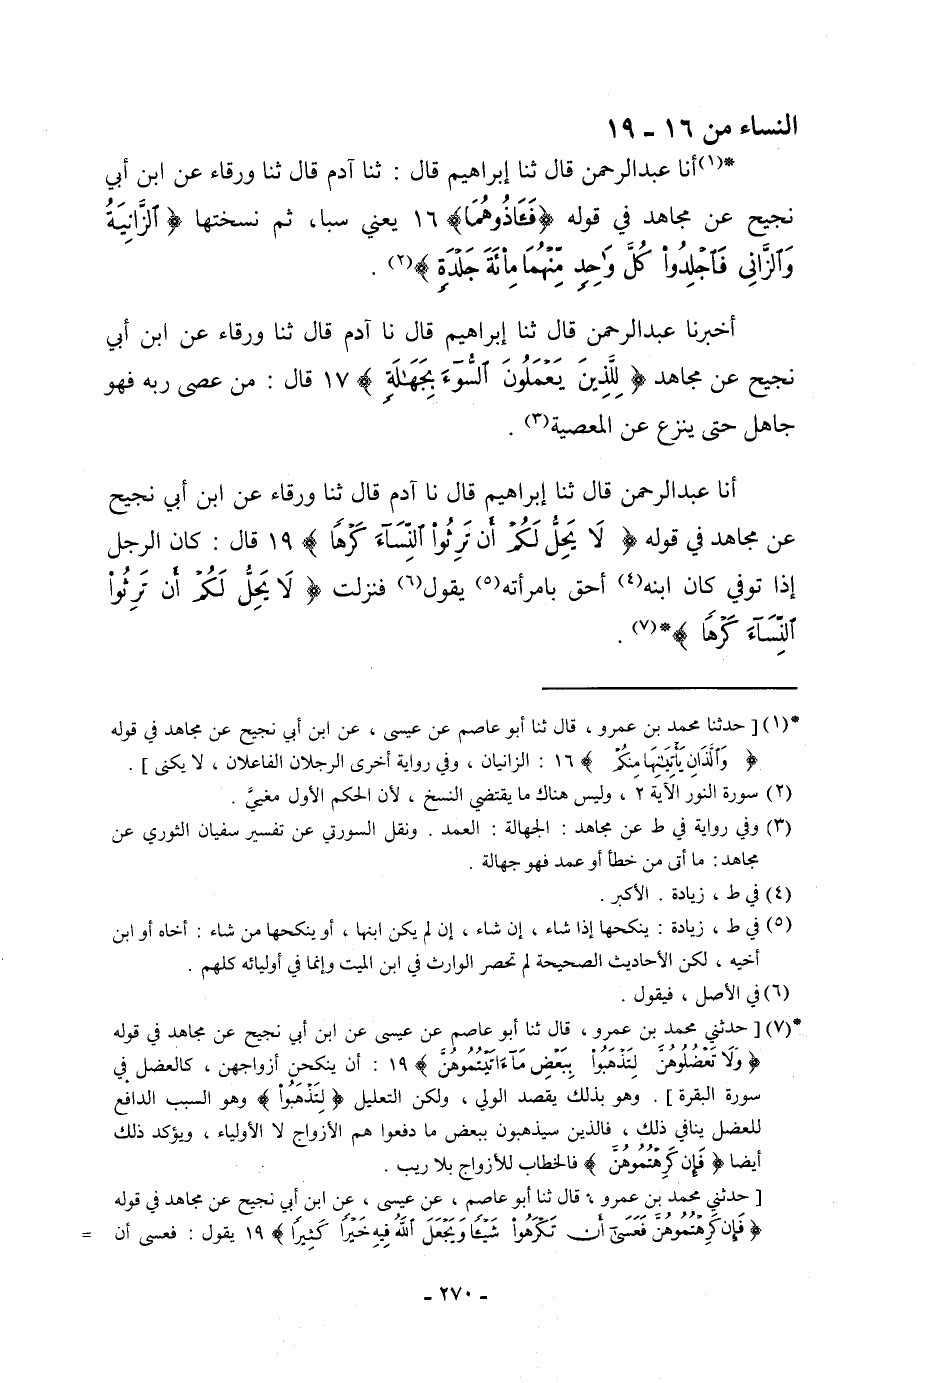 النساء من ١٦ - ١٩
*(١)أنا عبدالرحمن قال ثنا إبراهيم قال : ثنا آدم قال ثنا ورقاء عن ابن أبي
نجيح عن مجاهد في قوله ﴿فَـَٔاذُوهُمَا﴾ ١٦ يعني سبا، ثم نسختها ﴿ ٱلزَّانِيَةُ
وَٱلزَّانِى فَٱجْلِدُوا۟ كُلَّ وَٰحِدٍ مِّنْهُمَا مِا۟ئَةَ جَلْدَةٍ ﴾(٢) .
أخبرنا عبدالرحمن قال ثنا إبراهيم قال نا آدم قال ثنا ورقاء عن ابن أبي
نجيح عن مجاهد ﴿ لِلَّذِينَ يَعْمَلُونَ ٱلسُّوٓءَ بِجَهَٰلَةٍ ﴾ ١٧ قال : من عصى ربه فهو
جاهل حتى ينزع عن المعصية(٣) .
أنا عبدالرحمن قال ثنا إبراهيم قال نا آدم قال ثنا ورقاء عن ابن أبي نجيح
عن مجاهد في قوله ﴿ لَا يَحِلُّ لَكُمْ أَن تَرِثُوا۟ ٱلنِّسَآءَ كَرْهًا ﴾ ١٩ قال : كان الرجل
إذا توفي كان ابنه(٤) أحق بامرأته(٥) يقول(٦) فنزلت ﴿ لَا يَحِلُّ لَكُمْ أَن تَرِثُوا۟
ٱلنِّسَآءَ كَرْهًا ﴾*(٧) .
*(١) [ حدثنا محمد بن عمرو ، قال ثنا أبو عاصم عن عيسى ، عن ابن أبي نجيح عن مجاهد في قوله
﴿ وَٱلَّذَانِ يَأْتِيَٰنِهَا مِنكُمْ ﴾ ١٦ : الزانيان ، وفي رواية أخرى الرجلان الفاعلان ، لا يكنى ] .
(٢) سورة النور الآية ٢ ، وليس هناك ما يقتضي النسخ ، لأن الحكم الأول مغيَّ .
(٣) وفي رواية في ط عن مجاهد : الجهالة : العمد . ونقل السورتي عن تفسير سفيان الثوري عن
مجاهد : ما أتى من خطأ أو عمد فهو جهالة .
(٤) في ط ، زيادة . الأكبر .
(٥) في ط ، زيادة : ينكحها إذا شاء ، إن شاء ، إن لم يكن ابنها ، أو ينكحها من شاء : أخاه أو ابن
أخيه ، لكن الأحاديث الصحيحة لم تحصر الوارث في ابن الميت وإنما في أوليائه كلهم .
(٦) في الأصل ، فيقول .
*(٧) [ حدثني محمد بن عمرو ، قال ثنا أبو عاصم عن عيسى عن ابن أبي نجيح عن مجاهد في قوله
﴿ وَلَا تَعْضُلُوهُنَّ لِتَذْهَبُوا۟ بِبَعْضِ مَآ ءَاتَيْتُمُوهُنَّ ﴾ ١٩ : أن ينكحن أزواجهن ، كالعضل في
سورة البقرة ] . وهو بذلك يقصد الولي ، ولكن التعليل ﴿ لِتَذْهَبُوا۟ ﴾ وهو السبب الدافع
للعضل ينافي ذلك ، فالذين سيذهبون ببعض ما دفعوا هم الأزواج لا الأولياء ، ويؤكد ذلك
أيضا ﴿ فَإِن كَرِهْتُمُوهُنَّ ﴾ فالخطاب للأزواج بلا ريب .
[ حدثني محمد بن عمرو ، قال ثنا أبو عاصم ، عن عيسى ، عن ابن أبي نجيح عن مجاهد في قوله
﴿ فَإِن كَرِهْتُمُوهُنَّ فَعَسَىٰٓ أَن تَكْرَهُوا۟ شَيْـًٔا وَيَجْعَلَ ٱللَّهُ فِيهِ خَيْرًا كَثِيرًا ﴾ ١٩ يقول : فعسى أن =
- ٢٧٠ -